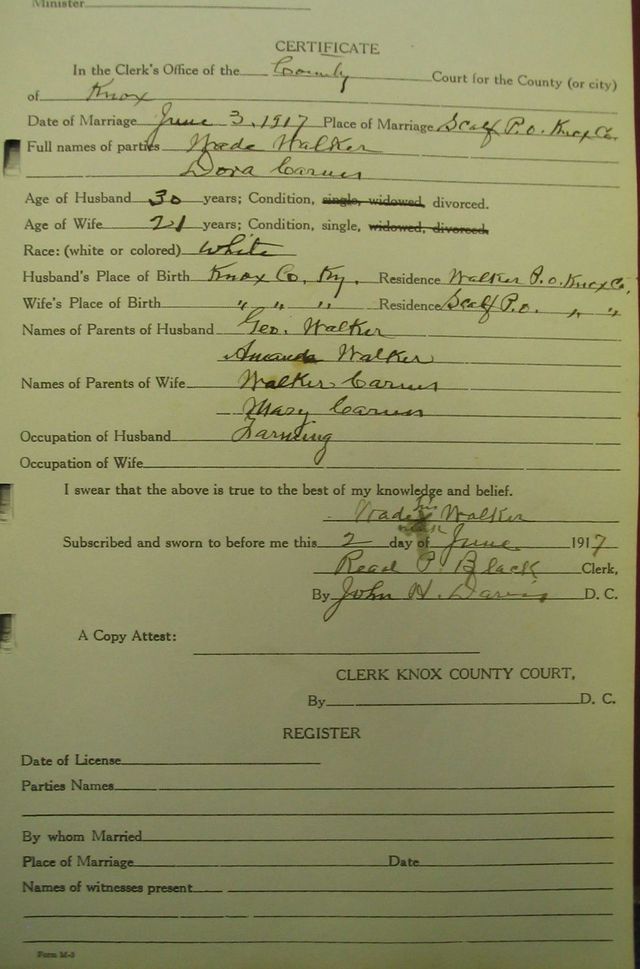 Minister
CERTIFICATE
In the Clerk's Office of the County Court for the County (or city)
of Knox
Date of Marriage June 3, 1917 Place of Marriage Scalf P.O. Knox Co.
Full names of parties Wade Walker
Dora Carnes
Age of Husband 30 years; Condition, single, widowed, divorced.
Age of Wife 21 years; Condition, single, widowed, divorced.
Race: (white or colored) White
Husband's Place of Birth Knox Co, Ky. Residence Walker P.O. Knox Co,
Wife's Place of Birth " " " Residence Scalf P.O. " "
Names of Parents of Husband Geo. Walker
Amanda Walker
Names of Parents of Wife Walker Carnes
Mary Carnes
Occupation of Husband Farming
Occupation of Wife
I swear that the above is true to the best of my knowledge and belief.
his
Wade X Walker
mark
Subscribed and sworn to before me this 2 day of June 1917
Read P. Black Clerk,
By John H. Davis D. C.
A Copy Attest:
CLERK KNOX COUNTY COURT,
By D. C.
REGISTER
Date of License
Parties Names
By whom Married
Place of Marriage Date
Names of witnesses present
Form M-3